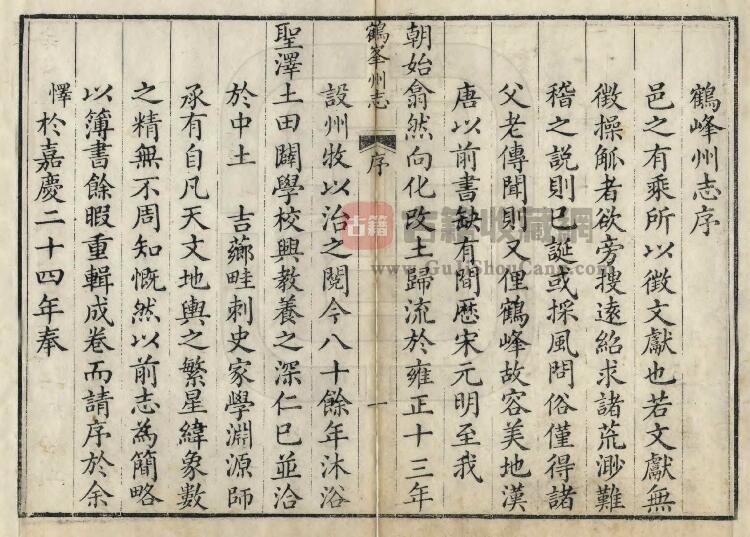 鶴峰州志序
邑之有乘所以徵文獻也若文獻無
徵操觚者欲旁搜遠紹求諸荒渺難
稽之説則已誕或採風問俗僅得諸
父老傳聞則又俚鶴峰故容美地漢
唐以前書缺有間歷宋元明至我
朝始翕然向化改土歸流於雍正十三年
鶴峯州志
序
一
設州牧以治之閱今八十餘年沐浴
聖澤土田闢學校興教養之深仁已並洽
於中土 吉薌畦刺史家學淵源師
承有自凡天文地輿之繁星緯象數
之精無不周知慨然以前志為簡略
以簿書餘暇重輯成卷而請序於余
懌於嘉慶二十四年奉
古籍
古籍收藏网
www.GuJiShouCang.com